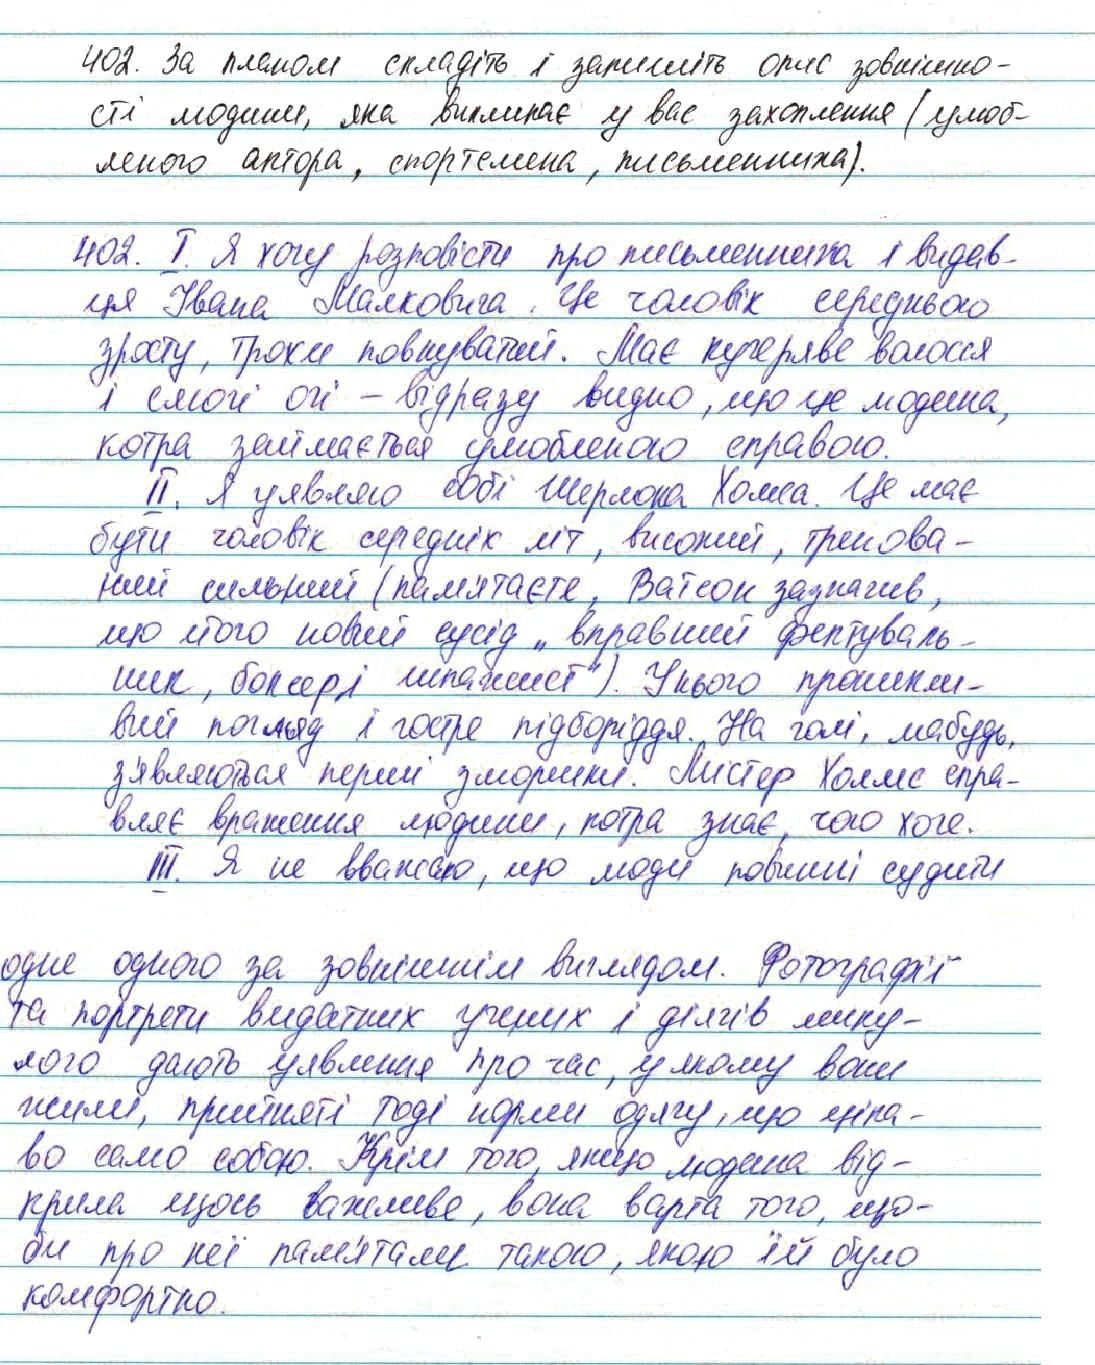 402. За планом складіть і запишіть опис зовнішно-
сті людини, яка викликає у вас захоплення (улюб-
леного актора, спортсмена, письменника).
402. I. Я хочу розповісти про письменника і видав-
ця Івана Малковича. Це чоловік середнього
зросту, трохи повнуватий. Має кучеряве волосся
і сяючі очі – відразу видно, що це людина,
котра займається улюбленою справою.
II. Я уявляю собі Шерлока Холмса. Це має
бути чоловік середніх літ, високий, тренова-
ний сильний (пам'ятаєте, Ватсон зазначив,
що його новий сусід „вправний фехтуваль-
ник, боксер і шпажист"). У нього проникли-
вий погляд і гостре підборіддя. На чолі, мабудь,
з'являються перші зморшки. Містер Холмс спра-
вляє враження людини, котра знає, чого хоче.
III. Я не вважаю, що люди повинні судити
одне одного за зовнішнім виглядом. Фотографії
та портрети видатних учених і діячів мину-
лого дають уявлення про час, у якому вони
жили, прийняті тоді норми одягу, що ціка-
во само собою. Крім того, якщо людина від-
крила щось важливе, вона варта того, що-
би про неї пам'ятали такою, якою їй було
комфортно.